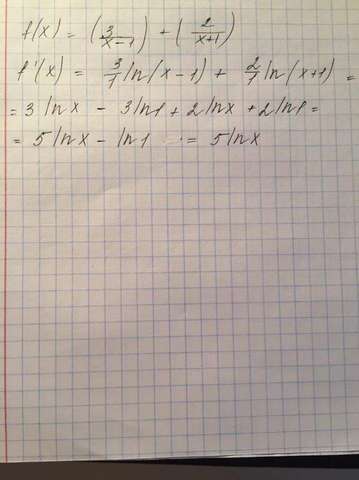 f(x) = (3/(x-1)) + (2/(x+1))
f'(x) = 3/1 ln(x-1) + 2/1 ln(x+1) =
= 3 ln x - 3 ln 1 + 2 ln x + 2 ln 1 =
= 5 ln x - ln 1 = 5 ln x